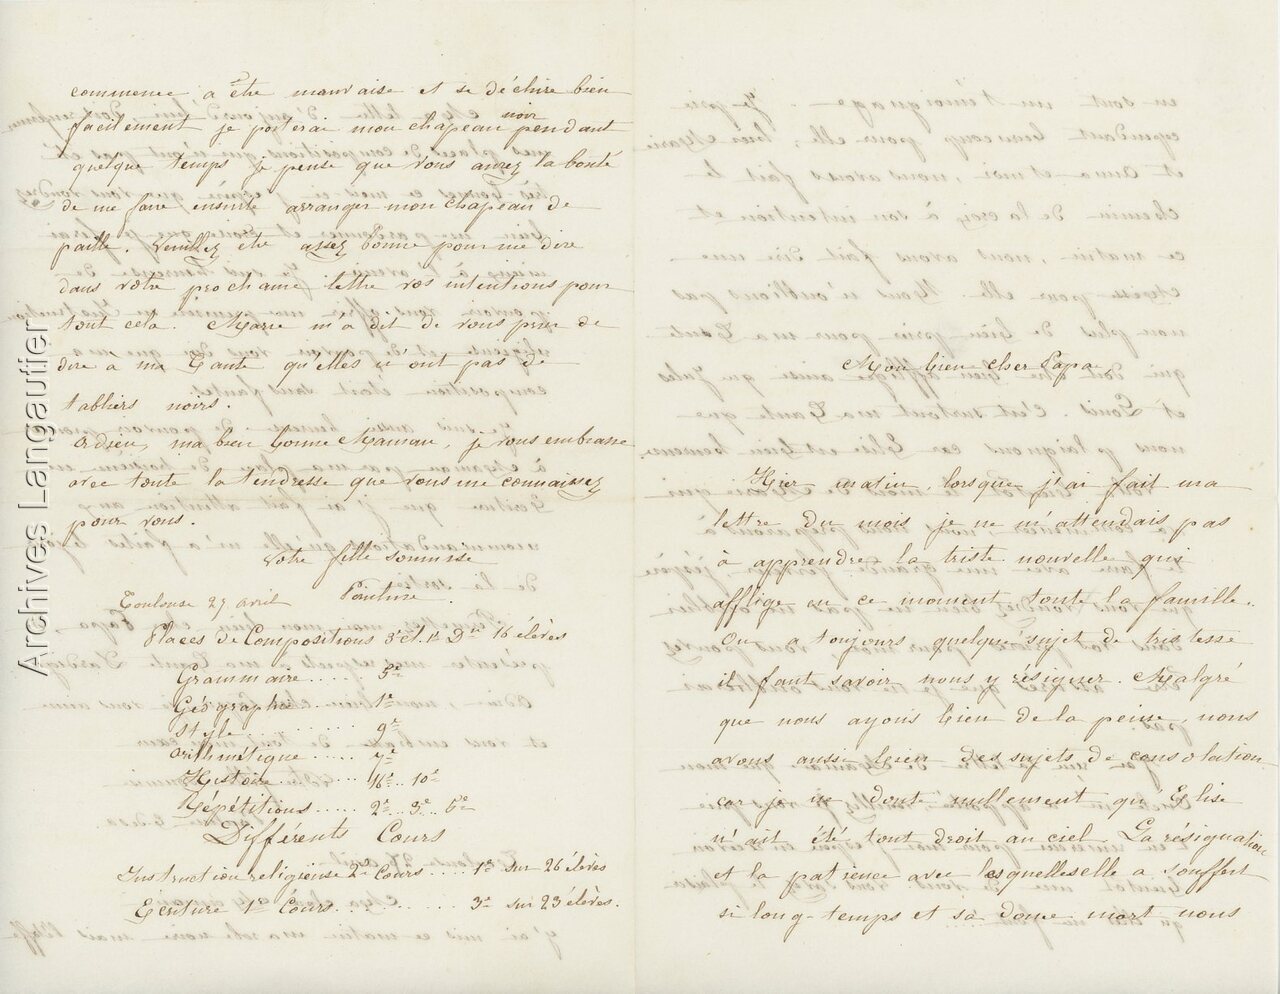 commence a être mauvaise et se déchire bien
facilement je porterai mon chapeau noir pendant
quelque temps je pense que vous aurez la bonté
de me faire ensuite arranger mon chapeau de
paille. Veuillez etre assez bonne pour me dire
dans votre prochaine lettre vos intentions pour
tout cela. Marie m'a dit de vous prier de
dire a ma Tante qu'elles n'ont pas de
tabliers noirs.
Adieu, ma bien bonne Maman, je vous embrasse
avec toute la tendresse que vous me connaissez
pour vous.
Votre fille soumise
Toulouse 27 avril
Places de Compositions 3e cl. 1e Don 16 élèves
Grammaire..... 5e
Géographie...... 1e
Style........... 9e
Arithmétique..... 7e
Histoire........ 16e.. 10e
Répétitions..... 2e.. 3e.. 6e
Différents Cours
Instruction religieuse 2e Cours.... 1e sur 26 élèves
Ecriture 1e Cours........... 3e sur 23 élèves.
Mon bien cher Papa,
Hier matin, lorsque j'ai fait ma
lettre du mois je ne m'attendais pas
à apprendre la triste nouvelle qui
afflige en ce moment toute la famille.
On a toujours quelque sujet de tristesse
il faut savoir nous y résigner. Malgré
que nous ayons bien de la peine, nous
avons aussi bien des sujets de consolation
car je ne doute nullement qu'Elise
n'ait été tout droit au ciel La résignation
et la patience avec lesquelles elle a souffert
si long-temps et sa douce mort nous
Archives Langautier